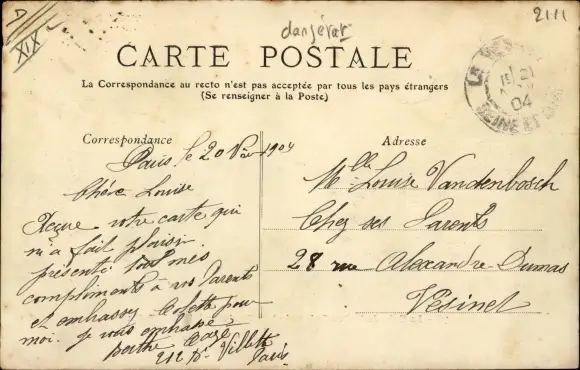 XIX
danjérat
2111
CARTE POSTALE
La Correspondance au recto n'est pas acceptée par tous les pays étrangers
(Se renseigner à la Poste)
Correspondance
Paris le 20 1904
Chère Louise
Reçue votre carte qui
m'a fait plaisir.
présenté tout mes
compliments à vos Parents
et embrasser Colette pour
moi. Je vous embrasse
Berthe
212 Bd Villette
Paris
Adresse
Mlle Louise Vandenbosch
Chez ses Parents
28 rue Alexandre Dumas
Vésinet
04
SEINE ET OISE